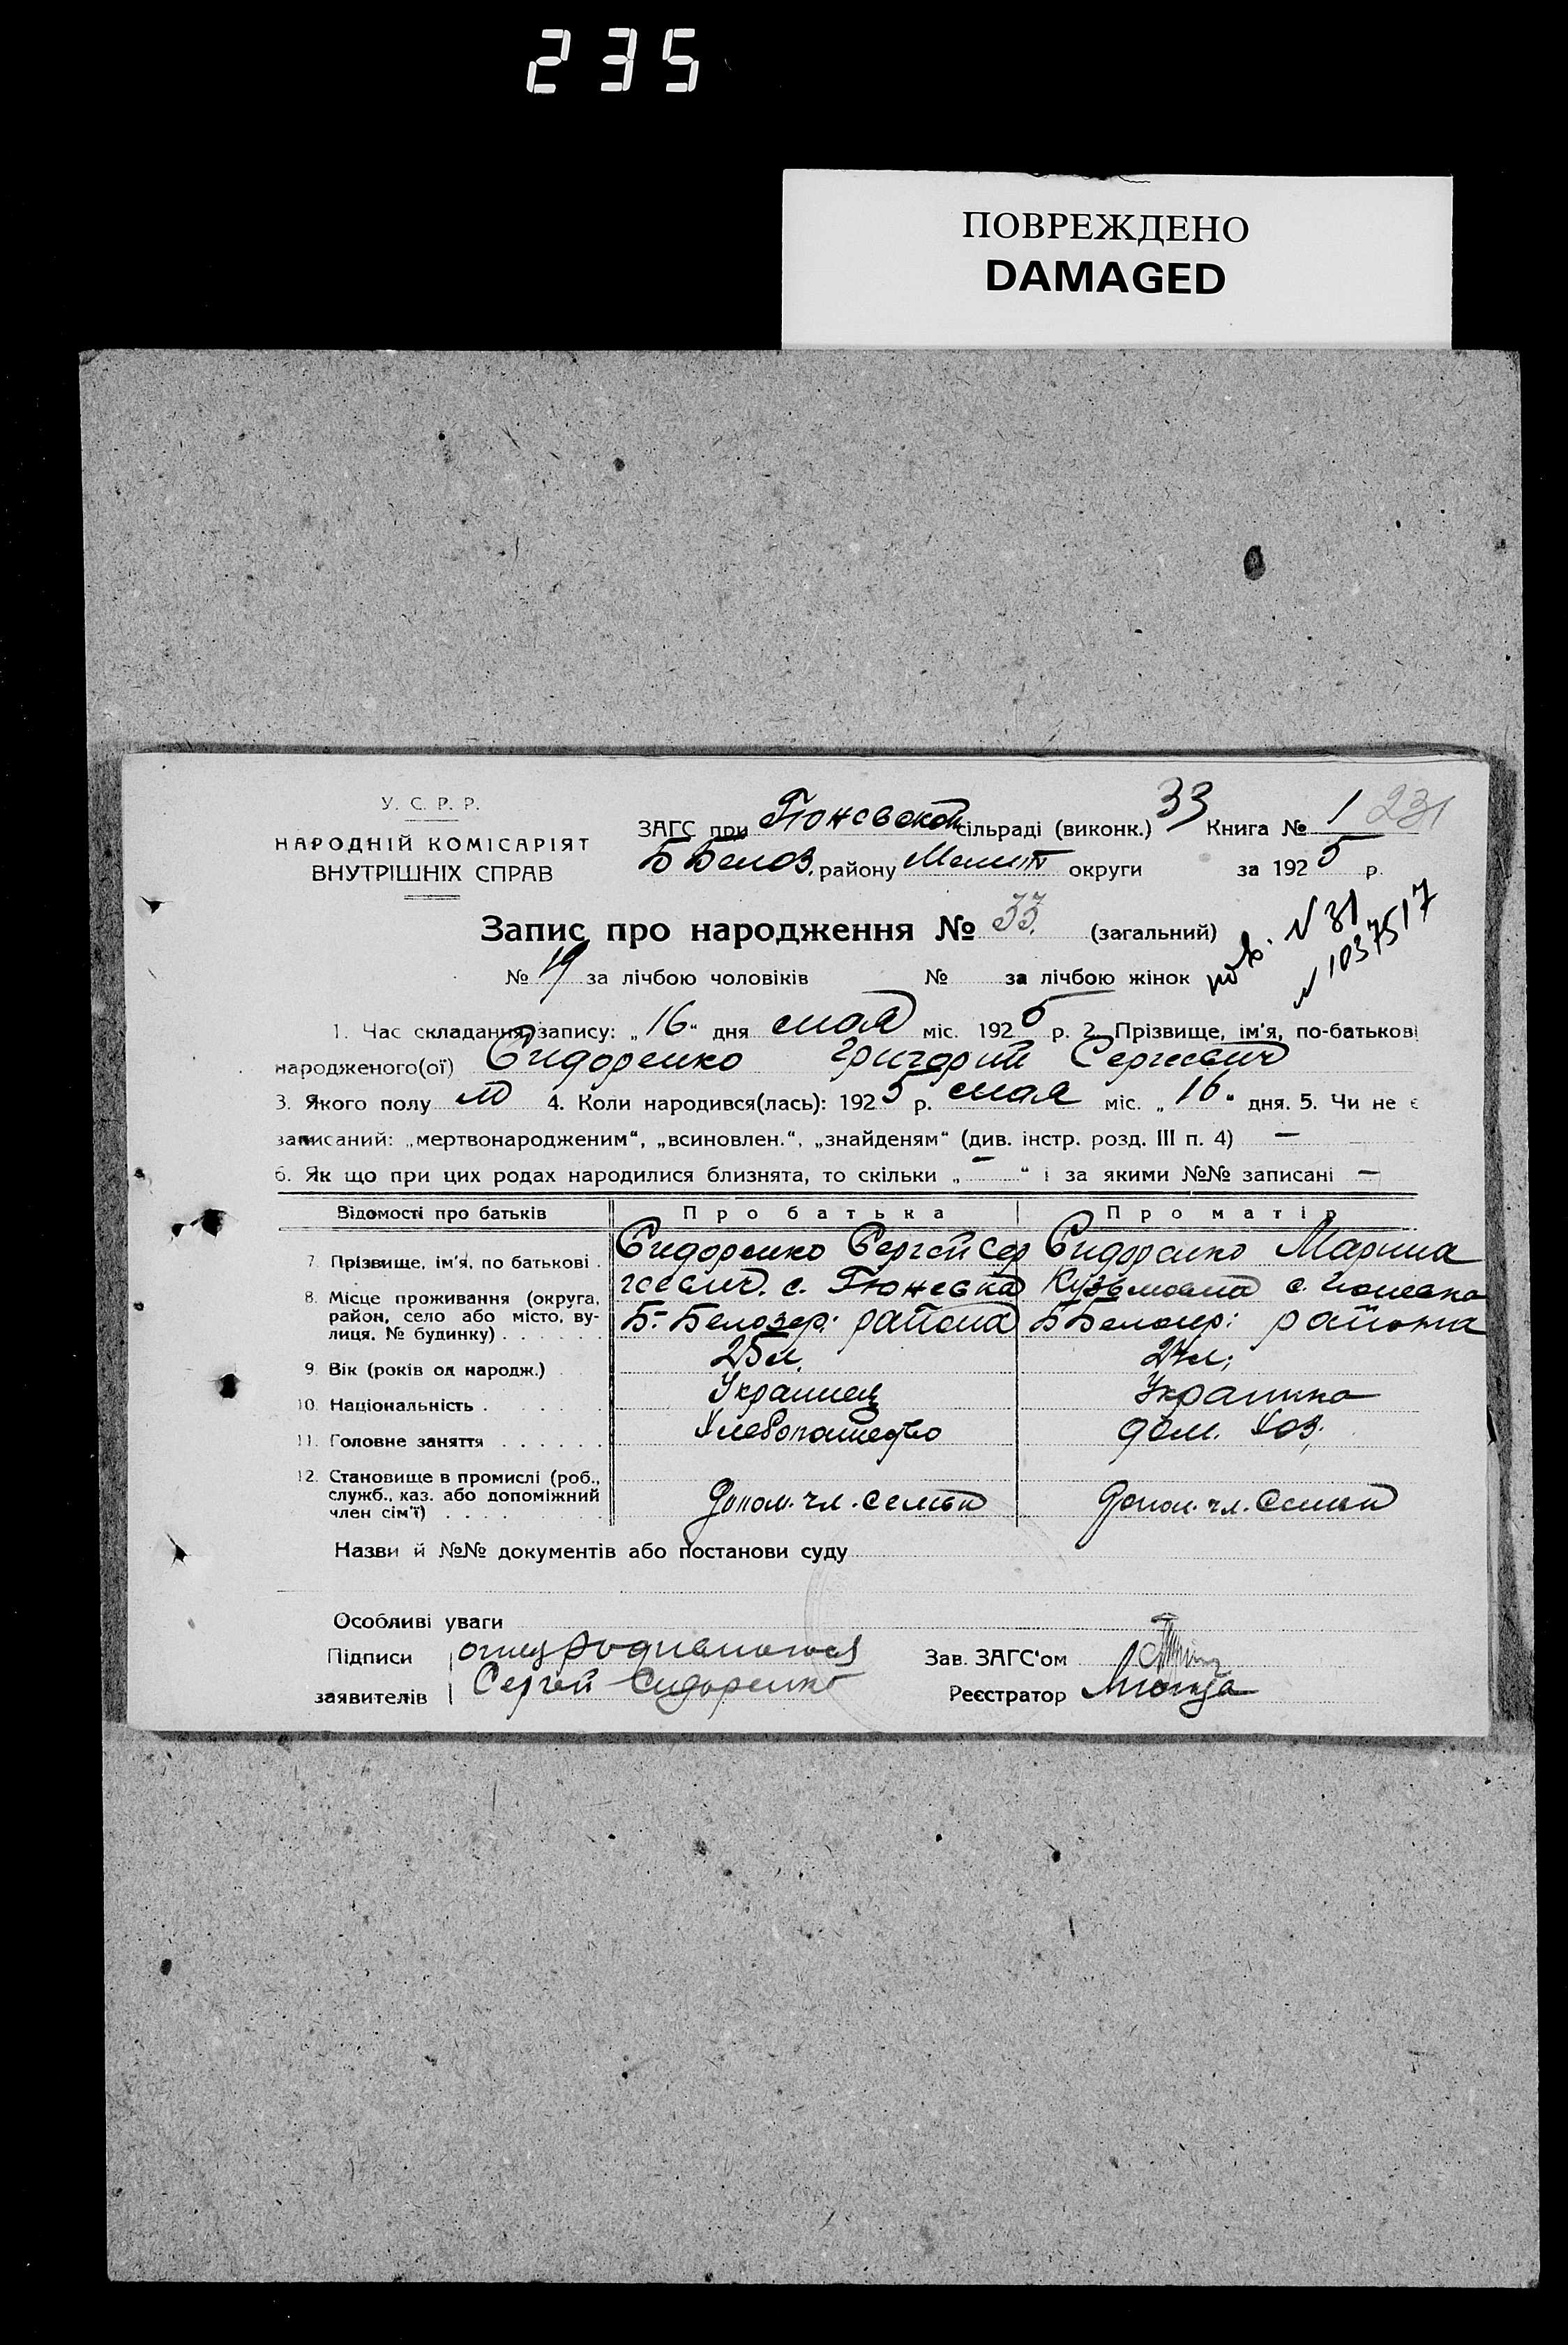 235
ПОВРЕЖДЕНО
DAMAGED
У. С. Р. Р.
НАРОДНІЙ КОМІСАРІЯТ
ВНУТРІШНІХ СПРАВ
ЗАГС при Гюневской сільраді (виконк.) 33 Книга № 1 231
Б Белоз. району Мелит округи за 1925 р.
Запис про народження № 33. (загальний)
№ 19 за лічбою чоловіків № за лічбою жінок
N 31
N 1037517
1. Час складання запису: „16“ дня мая міс. 1925 р. 2. Прізвище, ім'я, по-батькові
народженого(ої) Сидоренко Григорий Сергеевич
3. Якого полу м 4. Коли народився(лась): 1925 р. мая міс. „16“ дня. 5. Чи не є
записаний: „мертвонародженим“, „всиновлен.“, „знайденям“ (див. інстр. розд. III п. 4) —
6. Як що при цих родах народилися близнята, то скільки „—“ і за якими №№ записані —
Відомості про батьків Про батька Про матір
7. Прізвище, ім'я, по батькові . Сидоренко Сергей Сер Сидоренко Марина
геевич. с. Гюневка Кузьмовна с. Гюневка
8. Місце проживання (округа,
район, село або місто, ву-
лиця, № будинку) . . . . . . Б-Белозер: района Б Белозер: района
9. Вік (років од народж.) . 25 л. 24 л;
10. Національність . . . . . . Украинец Украинка
11. Головне заняття . . . . . . Хлебопашество дом. хоз.
12. Становище в промислі (роб.,
служб., хаз. або допоміжний
член сім'ї) . . . . Допом. чл. семьи Допом. чл. семьи
Назви й №№ документів або постанови суду
Особливі уваги
Підписи отец
заявителів Сергей Сидоренко
Зав. ЗАГС'ом
Реєстратор